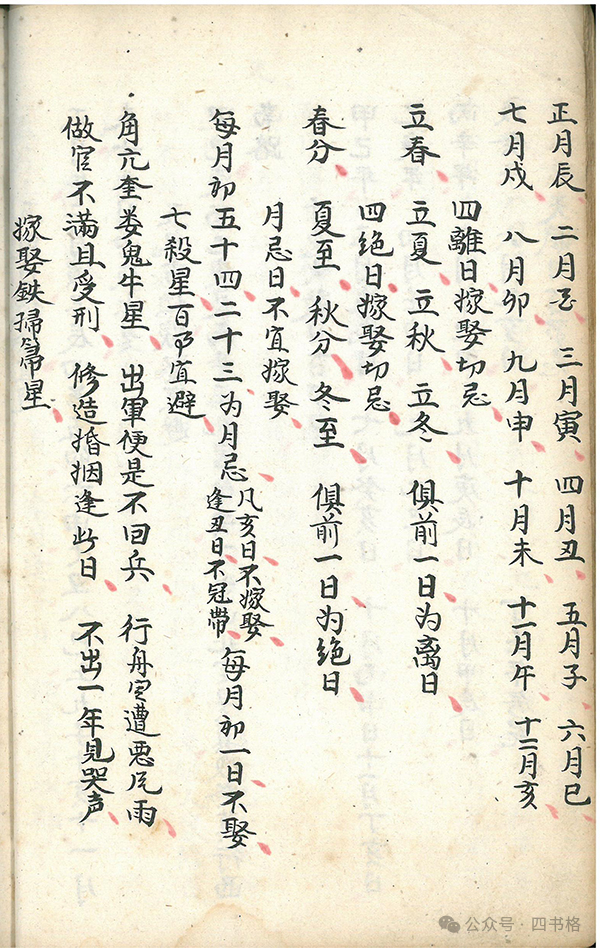 正月辰 二月 三月寅 四月丑 五月子 六月巳
七月戌 八月卯 九月申 十月未 十一月午 十二月亥
四離日嫁娶切忌
立春 立夏 立秋 立冬 俱前一日为离日
四絕日嫁娶切忌
春分 夏至 秋分 冬至 俱前一日为絕日
月忌日不宜嫁娶
每月初五十四二十三为月忌 凡亥日不嫁娶 逢丑日不冠帶 每月初一日不娶
七殺星百事宜避
角亢奎娄鬼牛星 出軍便是不回兵 行舟定遭恶风雨
做官不滿且受刑 修造婚姻逢此日 不出一年見哭声
嫁娶鉄掃箒星
公众号·四书格